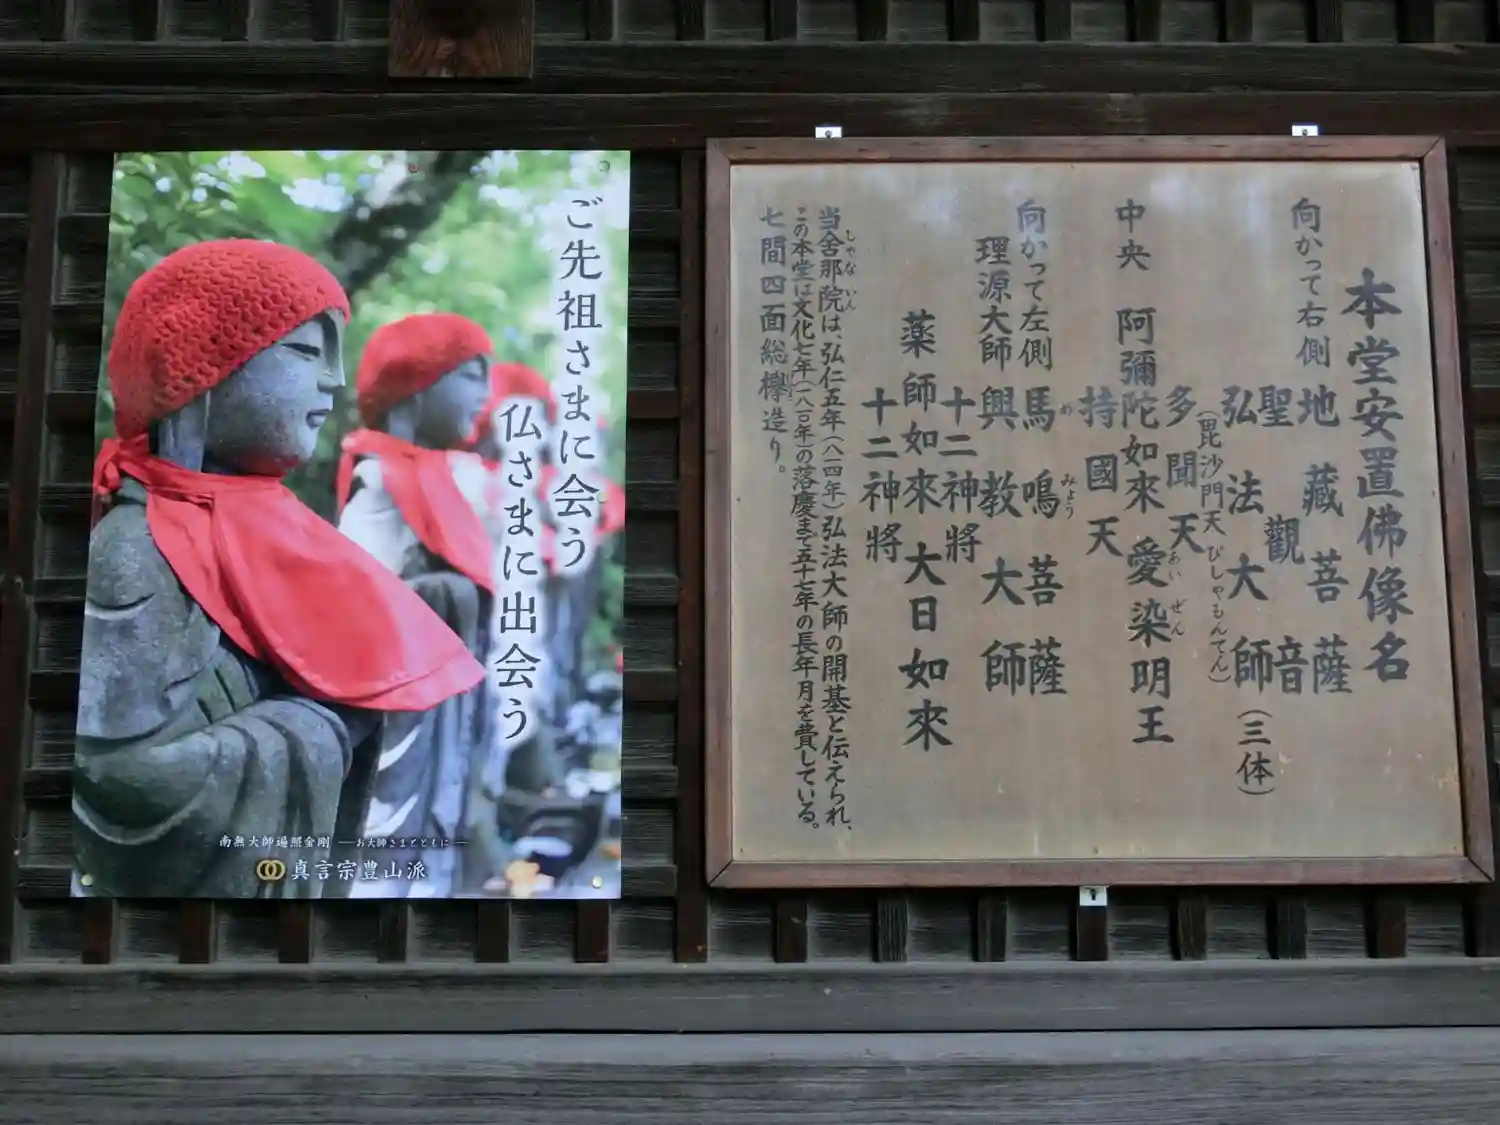 ご先祖さまに会う
仏さまに出会う
南無大師遍照金剛 ―お大師さまとともに―
真言宗豊山派
本堂安置佛像名
向かって右側
地藏菩薩
聖觀音
弘法大師(三体)
中央
(毘沙門天 びしゃもんてん)
多聞天
阿彌陀如來 愛染明王
あい ぜん
持國天
向かって左側
馬鳴菩薩
め みょう
理源大師
興教大師
十二神將
薬師如來 大日如來
十二神將
当舍那院は、弘仁五年(八一四年)弘法大師の開基と伝えられ、
しゃ な いん
この本堂は文化七年(一八一〇年)の落慶まで五十七年の長年月を費している。
七間四面総欅造り。